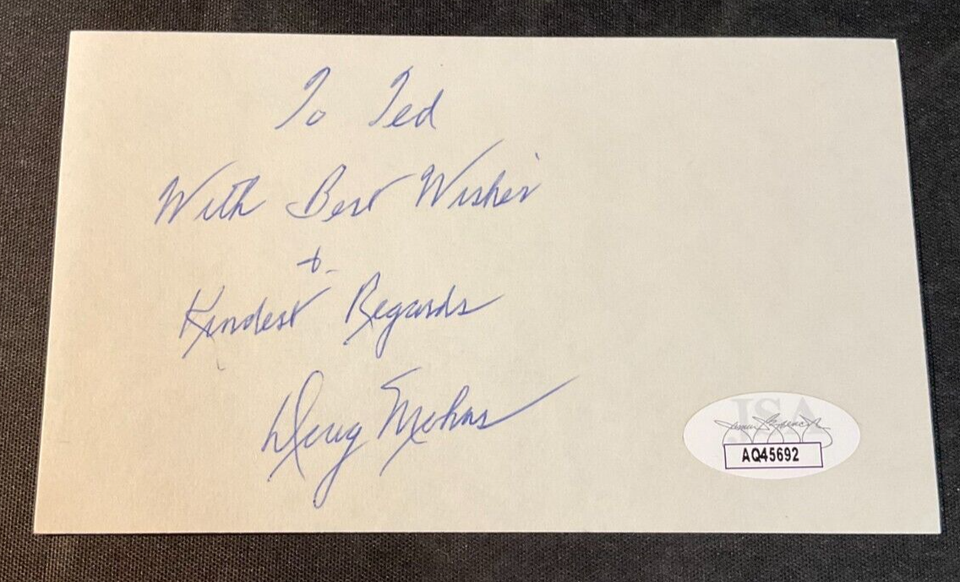 To Ted
With Best Wishes
+
Kindest Regards
Doug Mohns
JSA
AQ45692